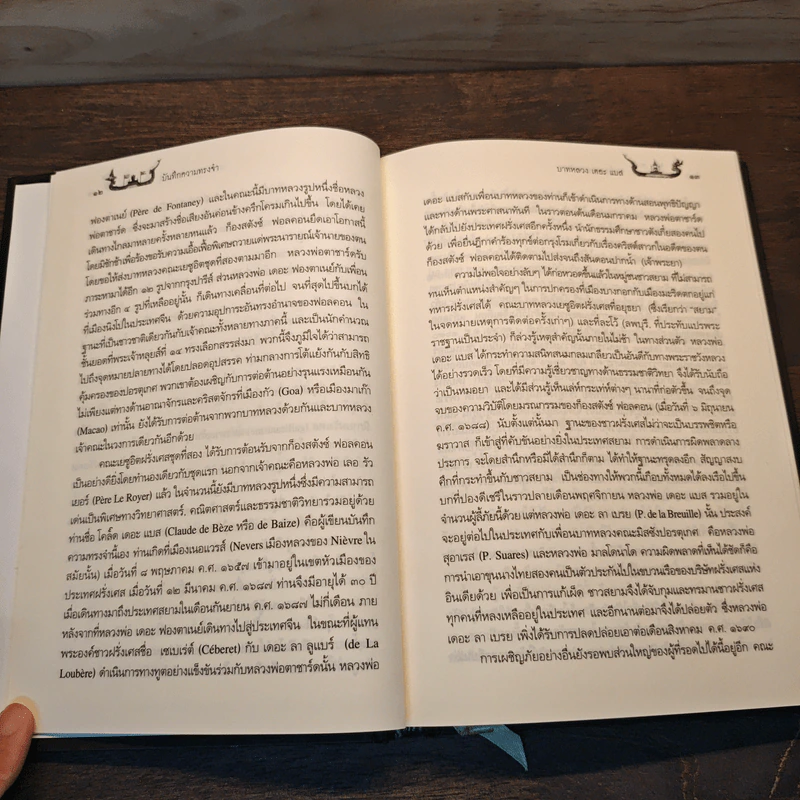 ๑๒
บันทึกความทรงจำ
ฟองตาเนย์ (Père de Fontaney) และในคณะนี้มีบาทหลวงรูปหนึ่งชื่อหลวง
พ่อตาชาร์ด ซึ่งจะมาสร้างชื่อเสียงอันค่อนข้างครึกโครมเกินไปขึ้น โดยได้เคย
เดินทางไกลมาหลายครั้งหลายหนแล้ว ก็องสตังซ์ ฟอลคอนยึดเอาโอกาสนี้
โดยมิชักช้าเพื่อร้องขอรับความเอื้อเฟื้อพิเศษถวายแด่พระนารายณ์เจ้านายของตน
โดยขอให้ส่งบาทหลวงคณะเยซูอิตชุดที่สองตามมาอีก หลวงพ่อตาชาร์ดรับ
ภาระหามาได้อีก ๑๒ รูปจากกรุงปารีส ส่วนหลวงพ่อ เดอะ ฟองตาเนย์กับเพื่อน
ร่วมทางอีก ๔ รูปที่เหลืออยู่นั้น ก็เดินทางเคลื่อนที่ต่อไป จนที่สุดไปขึ้นบกได้
ที่เมืองนิงโปในประเทศจีน ด้วยความอุปการะอันทรงอำนาจของฟอลคอน ใน
ฐานะที่เป็นชาวชาติเดียวกันกับเจ้าคณะทั้งหลายทางภาคนี้ และเป็นนักคำนวณ
ชั้นยอดที่พระเจ้าหลุยส์ที่ ๑๔ ทรงเลือกสรรส่งมา พวกนี้จึงภูมิใจได้ว่าสามารถ
ไปถึงจุดหมายปลายทางได้โดยปลอดอุปสรรค ท่ามกลางการโต้แย้งกันกับสิทธิ
คุ้มครองของปอรตุเกศ พวกเขาต้องเผชิญกับการต่อต้านอย่างรุนแรงเหมือนกัน
ไม่เพียงแต่ทางด้านอาณาจักรและคริสตจักรที่เมืองกัว (Goa) หรือเมืองมาเก๊า
(Macao) เท่านั้น ยังได้รับการต่อต้านจากพวกบาทหลวงด้วยกันและบาทหลวง
เจ้าคณะในวงการเดียวกันอีกด้วย
คณะเยซูอิตฝรั่งเศสชุดที่สอง ได้รับการต้อนรับจากก็องสตังซ์ ฟอลคอน
เป็นอย่างดียิ่งโดยทำนองเดียวกับชุดแรก นอกจากเจ้าคณะคือหลวงพ่อ เลอ รัว
เยอร์ (Père Le Royer) แล้ว ในจำนวนนี้ยังมีบาทหลวงรูปหนึ่งซึ่งมีความสามารถ
เด่นเป็นพิเศษทางวิทยาศาสตร์, คณิตศาสตร์และธรรมชาติวิทยารวมอยู่ด้วย
ท่านชื่อ โคล็ด เดอะ แบส (Claude de Bèze หรือ de Baize) คือผู้เขียนบันทึก
ความทรงจำนี้เอง ท่านเกิดที่เมืองเนอแวรส์ (Nevers เมืองหลวงของ Nièvre ใน
สมัยนั้น) เมื่อวันที่ ๘ พฤษภาคม ค.ศ. ๑๖๕๗ เข้ามาอยู่ในเขตหัวเมืองของ
ประเทศฝรั่งเศส เมื่อวันที่ ๑๒ มีนาคม ค.ศ. ๑๖๘๗ ท่านจึงมีอายุได้ ๓๐ ปี
เมื่อเดินทางมาถึงประเทศสยามในเดือนกันยายน ค.ศ. ๑๖๘๗ ไม่กี่เดือน ภาย
หลังจากที่หลวงพ่อ เดอะ ฟองตาเนย์เดินทางไปสู่ประเทศจีน ในขณะที่ผู้แทน
พระองค์ชาวฝรั่งเศสชื่อ เซเบเร่ต์ (Céberet) กับ เดอะ ลา ลูแบร์ (de La
Loubère) ดำเนินการทางทูตอย่างแข็งขันร่วมกับหลวงพ่อตาชาร์ดนั้น หลวงพ่อ
บาทหลวง เดอะ แบส
๑๓
เดอะ แบสกับเพื่อนบาทหลวงของท่านก็เข้าดำเนินการทางด้านสอนพุทธิปัญญา
และทางด้านพระศาสนาทันที ในราวตอนต้นเดือนมกราคม หลวงพ่อตาชาร์ด
ได้กลับไปยังประเทศฝรั่งเศสอีกครั้งหนึ่ง นำนักธรรมศึกษาชาวตังเกี๋ยสองคนไป
ด้วย เพื่อยื่นฎีกาคำร้องทุกข์ต่อกรุงโรมเกี่ยวกับเรื่องคริสต์สาวกในอดีตของตน
ก็องสตังซ์ ฟอลคอนได้ติดตามไปส่งจนถึงสันดอนปากน้ำ (เจ้าพระยา)
ความไม่พอใจอย่างลับๆ ได้ก่อหวอดขึ้นแล้วในหมู่ชนชาวสยาม ที่ไม่สามารถ
ทนเห็นตำแหน่งสำคัญๆ ในการปกครองที่เมืองบางกอกกับเมืองมะริดตกอยู่แก่
ทหารฝรั่งเศสได้ คณะบาทหลวงเยซูอิตฝรั่งเศสที่อยุธยา (ซึ่งเรียกว่า "สยาม"
ในจดหมายเหตุการติดต่อครั้งเก่าๆ) และที่ละโว้ (ลพบุรี, ที่ประทับแปรพระ
ราชฐานเป็นประจำ) ก็ล่วงรู้เหตุสำคัญนั้นภายในไม่ช้า ในทางส่วนตัว หลวงพ่อ
เดอะ แบส ได้กระทำความสนิทสนมกลมเกลียวเป็นอันดีกับทางพระราชวังหลวง
ได้อย่างรวดเร็ว โดยที่มีความรู้เชี่ยวชาญทางด้านธรรมชาติวิทยา จึงได้รับนับถือ
ว่าเป็นหมอยา และได้มีส่วนรู้เห็นเล่ห์กระเท่ห์ต่างๆ นานาที่ก่อตัวขึ้น จนถึงจุด
จบของความวิบัติโดยมรณกรรมของก็องสตังซ์ ฟอลคอน (เมื่อวันที่ ๖ มิถุนายน
ค.ศ. ๑๖๘๘) นับตั้งแต่นั้นมา ฐานะของชาวฝรั่งเศสไม่ว่าจะเป็นบรรพชิตหรือ
ฆราวาส ก็เข้าสู่ที่คับขันอย่างยิ่งในประเทศสยาม การดำเนินการผิดพลาดลาง
ประการ จะโดยสำนึกหรือมิได้สำนึกก็ตาม ได้ทำให้ฐานะทรุดลงอีก สัญญาสงบ
ศึกที่กระทำขึ้นกับชาวสยาม เป็นช่องทางให้พวกนี้เกือบทั้งหมดได้ลงเรือไปขึ้น
บกที่ปองดิเชรีในราวปลายเดือนพฤศจิกายน หลวงพ่อ เดอะ แบส รวมอยู่ใน
จำนวนผู้ลี้ภัยนี้ด้วย แต่หลวงพ่อ เดอะ ลา เบรย (P. de la Breuille) นั้น ประสงค์
จะอยู่ต่อไปในประเทศกับเพื่อนบาทหลวงคณะมิสซังปอรตุเกศ คือหลวงพ่อ
สุอาเรส (P. Suares) และหลวงพ่อ มาลโดนาโด ความผิดพลาดที่เห็นได้ชัดก็คือ
การนำเอาขุนนางไทยสองคนเป็นตัวประกันไปในขบวนเรือของบริษัทฝรั่งเศสแห่ง
อินเดียด้วย เพื่อเป็นการแก้เผ็ด ชาวสยามจึงได้จับกุมและทรมานชาวฝรั่งเศส
ทุกคนที่หลงเหลืออยู่ในประเทศ และอีกนานต่อมาจึงได้ปล่อยตัว ซึ่งหลวงพ่อ
เดอะ ลา เบรย เพิ่งได้รับการปลดปล่อยเอาต่อเดือนสิงหาคม ค.ศ. ๑๖๙๐
การเผชิญภัยอย่างอื่นยังรอพบส่วนใหญ่ของผู้ที่รอดไปได้นี้อยู่อีก คณะ